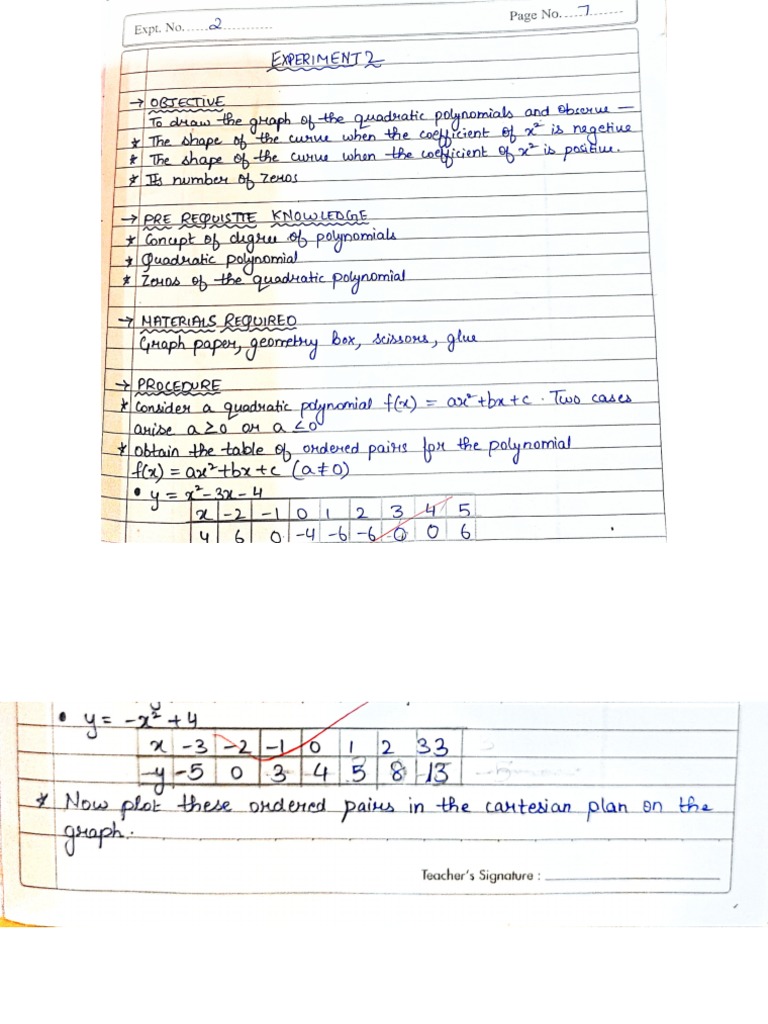 Expt. No. 2
Page No. 7
EXPERIMENT 2
→ OBJECTIVE
To draw the graph of the quadratic polynomials and observe —
* The shape of the curve when the coefficient of x² is negetive
* The shape of the curve when the coefficient of x² is positive.
* Its number of zeros
→ PRE REQUISTIE KNOWLEDGE
* Concept of degree of polynomials
* Quadratic polynomial
* Zeros of the quadratic polynomial
→ MATERIALS REQUIRED
Graph paper, geometry box, scissors, glue
→ PROCEDURE
* Consider a quadratic polynomial f(x) = ax²+bx+c. Two cases
arise a ≥ 0 or a < 0
* Obtain the table of ordered pairs for the polynomial
f(x) = ax²+bx+c (a ≠ 0)
• y = x²-3x-4
x -2 -1 0 1 2 3 4 5
y 6 0 -4 -6 -6 0 0 6
• y = -x²+4
x -3 -2 -1 0 1 2 33
-y -5 0 3 4 5 8 13
* Now plot these ordered pairs in the cartesian plan on the
graph.
Teacher's Signature :